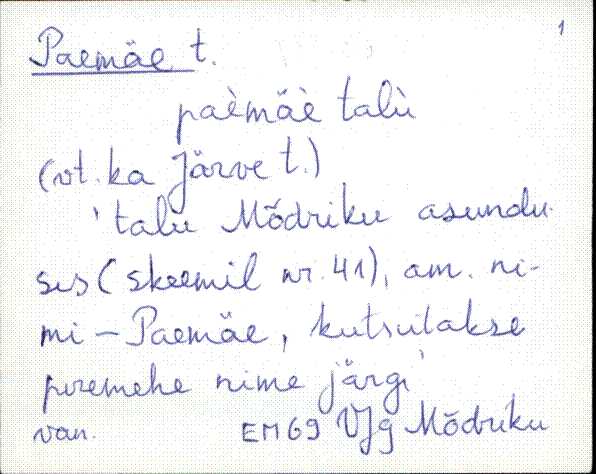 1
Paemäe t.
paèmäè talù
(vt. ka Järve t.)
'talu Mõdriku asundu-
ses (skeemil nr. 41), am. ni-
mi – Paemäe, kutsutakse
peremehe nime järgi'
van. EM69 VJg Mõdriku